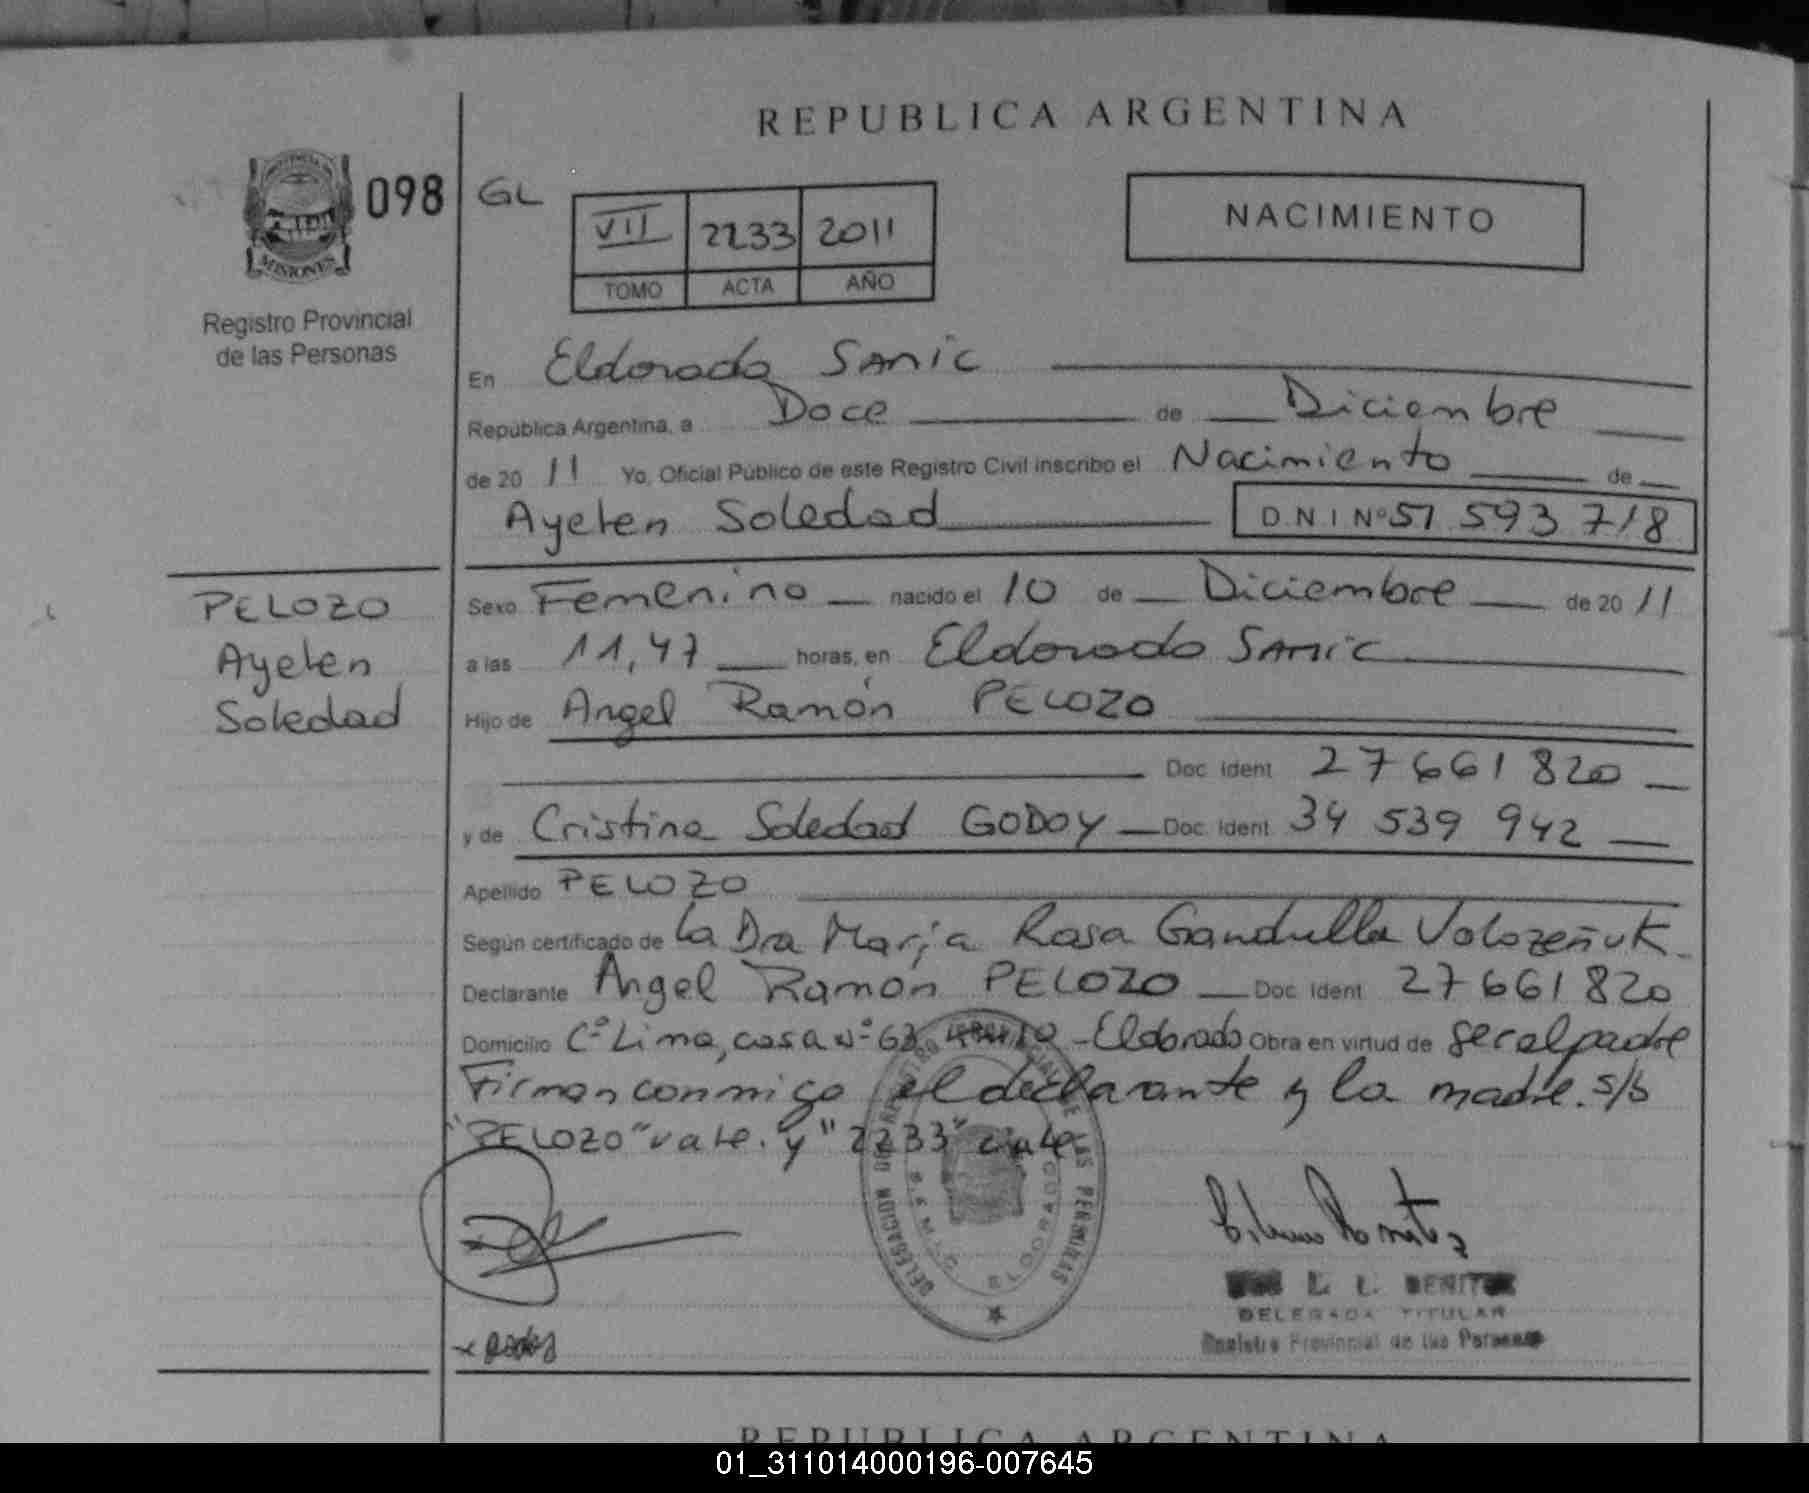 REPUBLICA ARGENTINA
098 GL
NACIMIENTO
VII 2233 2011
TOMO ACTA AÑO
MISIONES
Registro Provincial
de las Personas
En Eldorado SAMIC
República Argentina, a Doce de Diciembre
de 20 11 Yo, Oficial Público de este Registro Civil inscribo el Nacimiento de
Ayelen Soledad D.N.I Nº 51 593 718
PELOZO
Ayelen
Soledad
Sexo Femenino nacido el 10 de Diciembre de 20 11
a las 11,47 horas, en Eldorado SAMIC
Hijo de Angel Ramón PELOZO
Doc. Ident 27661820
y de Cristina Soledad GODOY Doc. Ident. 34 539 942
Apellido PELOZO
Según certificado de La Dra María Rosa Gandulla Volozeñuk
Declarante Angel Ramón PELOZO Doc. Ident 27661820
Domicilio Cº Lima, casa Nº 63 - Eldorado Obra en virtud de ser el padre
Firman conmigo el declarante y la madre. s/b
"PELOZO" vale. y "2233" vale
DELEGACION DEL REGISTRO PROVINCIAL DE LAS PERSONAS
ELDORADO
L. BENITEZ
DELEGADA TITULAR
Registro Provincial de las Personas
REPUBLICA ARGENTINA
01_311014000196-007645